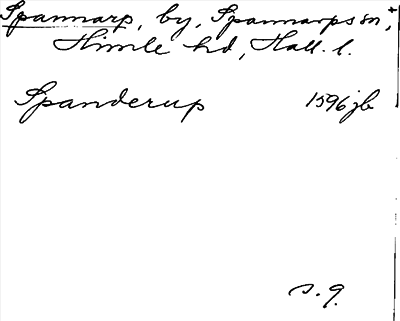 Spannarp, by, Spannarps sn,
Himle hd, Hall. l.
Spanderup 1596 jb
s. 9.